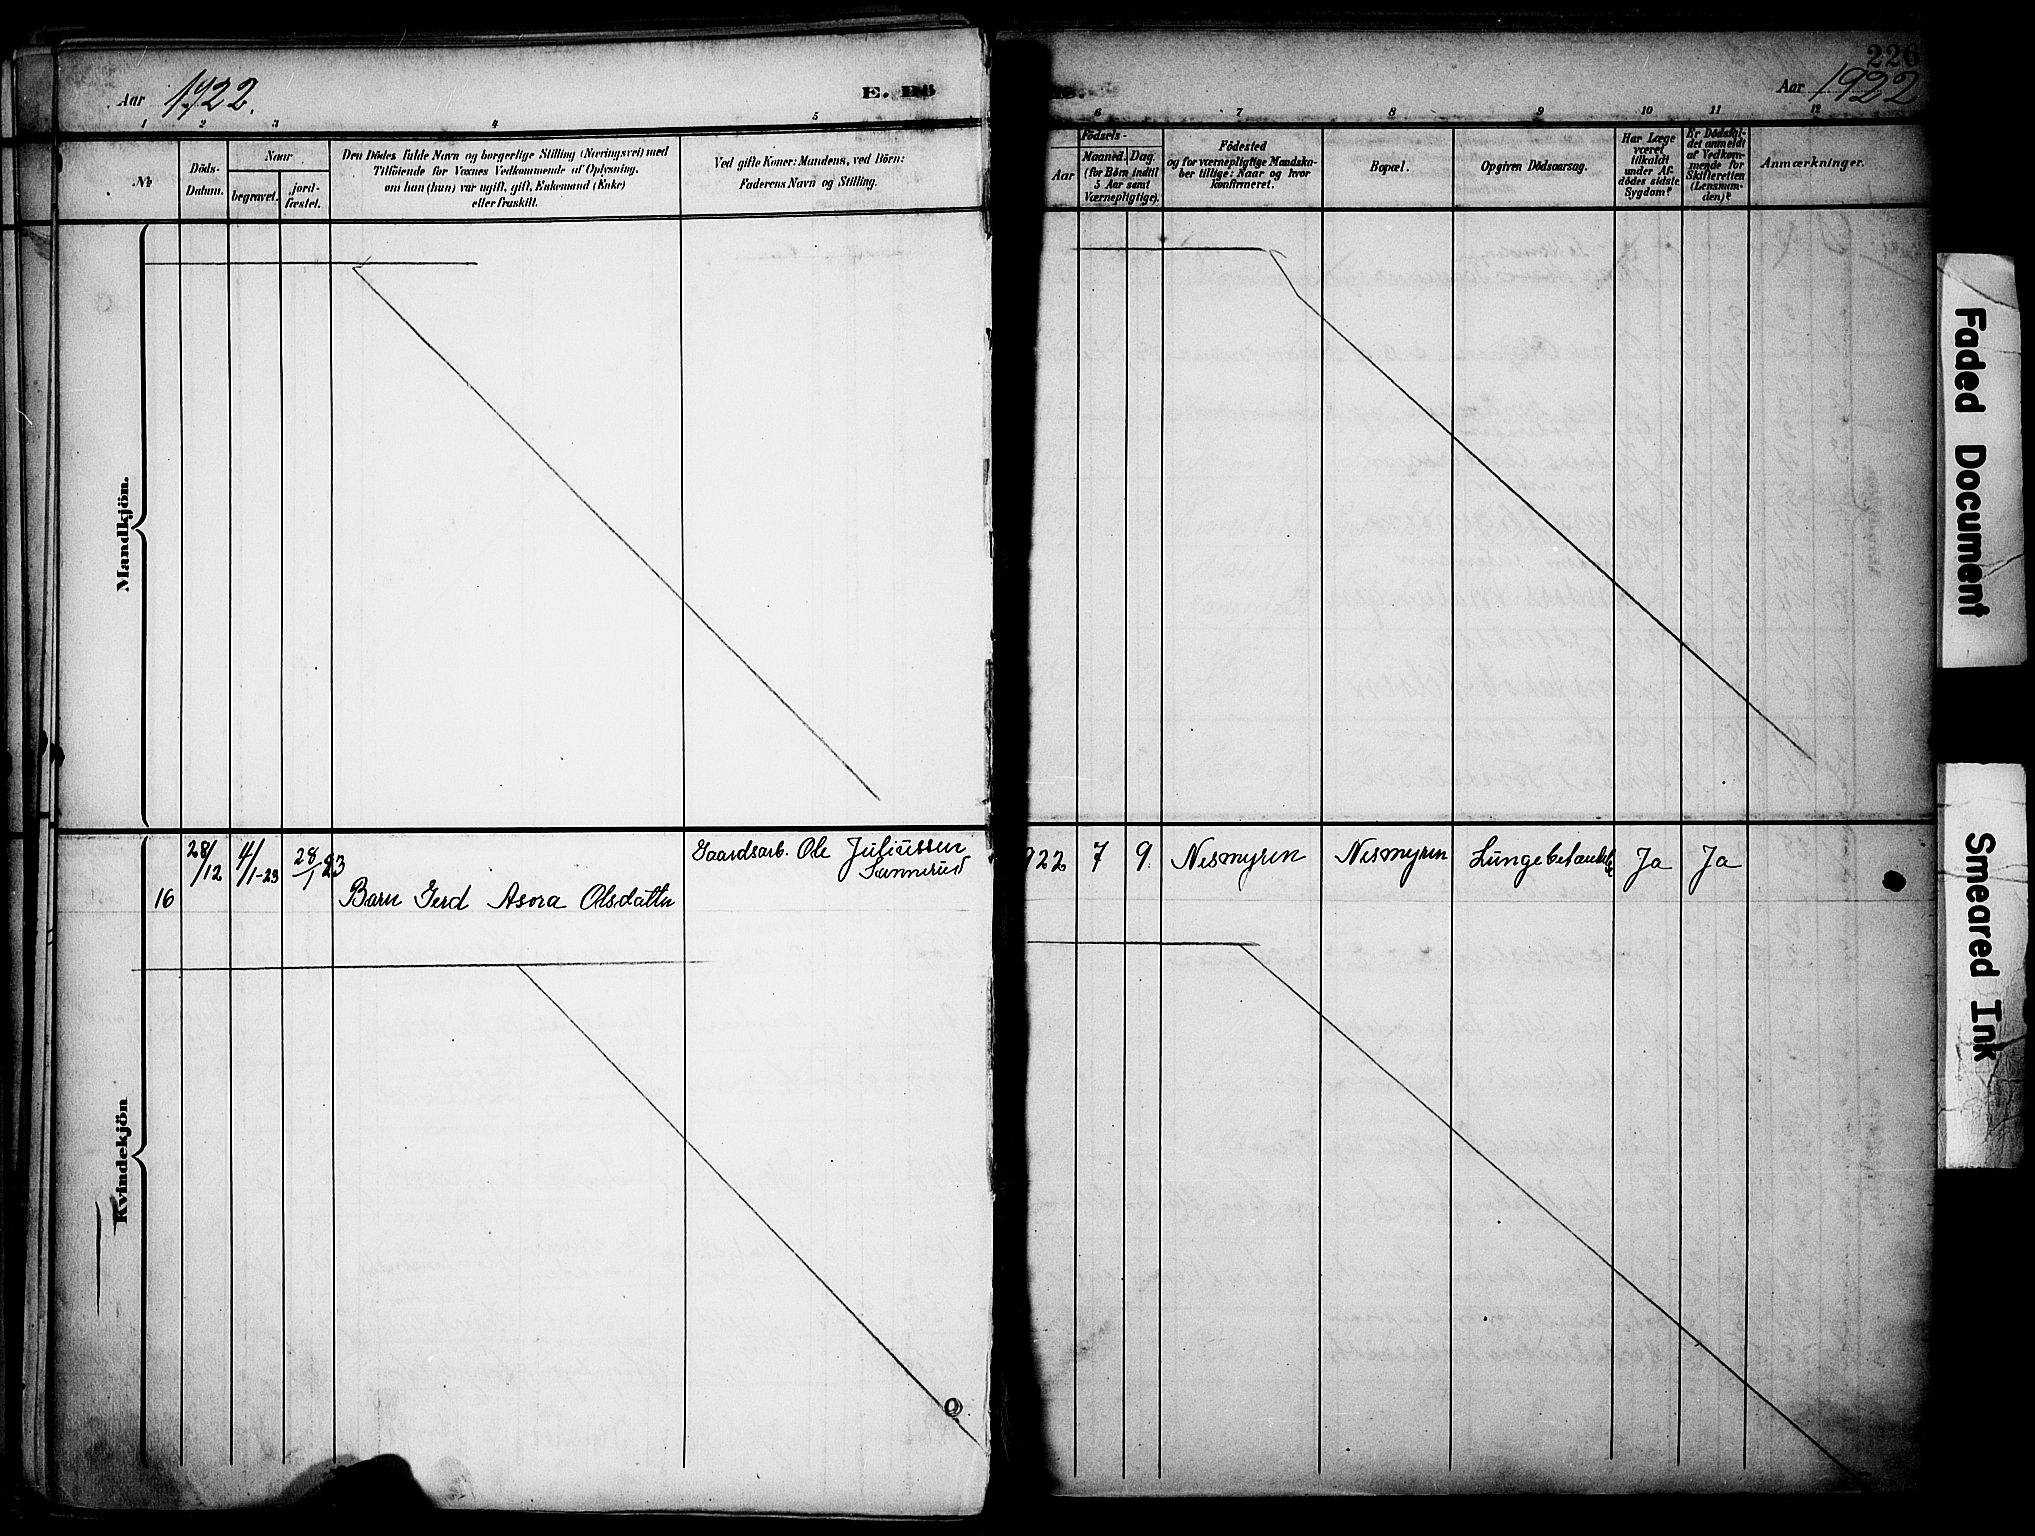 226
Aar 1922.
E. Dö
Aar 1922
1 2 3 4 5
6 7 8 9 10 11 12
№
Döds-
Datum.
Naar
begravet.
jord-
fæstet.
Den Dödes fulde Navn og borgerlige Stilling (Næringsvei) med
Tilföiende for Voxnes Vedkommende af Oplysning,
om hun (han) var ugift, gift, Enkemand (Enke)
eller fraskilt.
Ved gifte Koner: Mandens, ved Börn:
Faderens Navn og Stilling.
Födsels-
Aar
Maaned. Dag.
(for Börn indtil
5 Aar samt
Værnepligtige).
Födested
og for værnepligtige Mandska-
ber tillige: Naar og hvor
konfirmeret.
Bopæl.
Opgiven Dödsaarsag.
Har Læge
været
tilkaldt
under Af-
dödes sidste
Sygdom?
Er Dödsfal-
det anmeldt
af Vedkom-
mende for
Skifteretten
(Lensman-
den)?
Anmærkninger.
Mandkjön.
Kvindekjön
16
28/12
4/1-23
28/1 23
Barn Gerd Asora Olsdatter
Gaardsarb. Ole Juliussen
Sannerud
922 7 9. Nesmyren Nesmyren Lungebetændelse Ja Ja
Faded Document
Smeared Ink